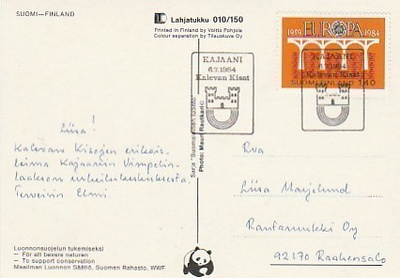 SUOMI—FINLAND
Lahjatukku 010/150
Printed in Finland by Voitto Pohjola
Colour separation by Tilauskuva Oy
EUROPA
1959 1984
SUOMI FINLAND 1,40
KAJAANI
6.7.1984
Kalevan Kisat
KAJAANI
6.7.1984
Kalevan Kisat
Liisa!
Kalevan Kisojen erikois-
leima Kajaanin Vimpelin-
laakson urheilukeskuksesta.
Terveisin Elmi
Photo: Mauri Rautkari
Rva
Liisa Marjelund
Rautaruukki Oy
92170 Raahensalo
Luonnonsuojelun tukemiseksi
— För att bevara naturen
— To support conservation
Maailman Luonnon Säätiö, Suomen Rahasto, WWF